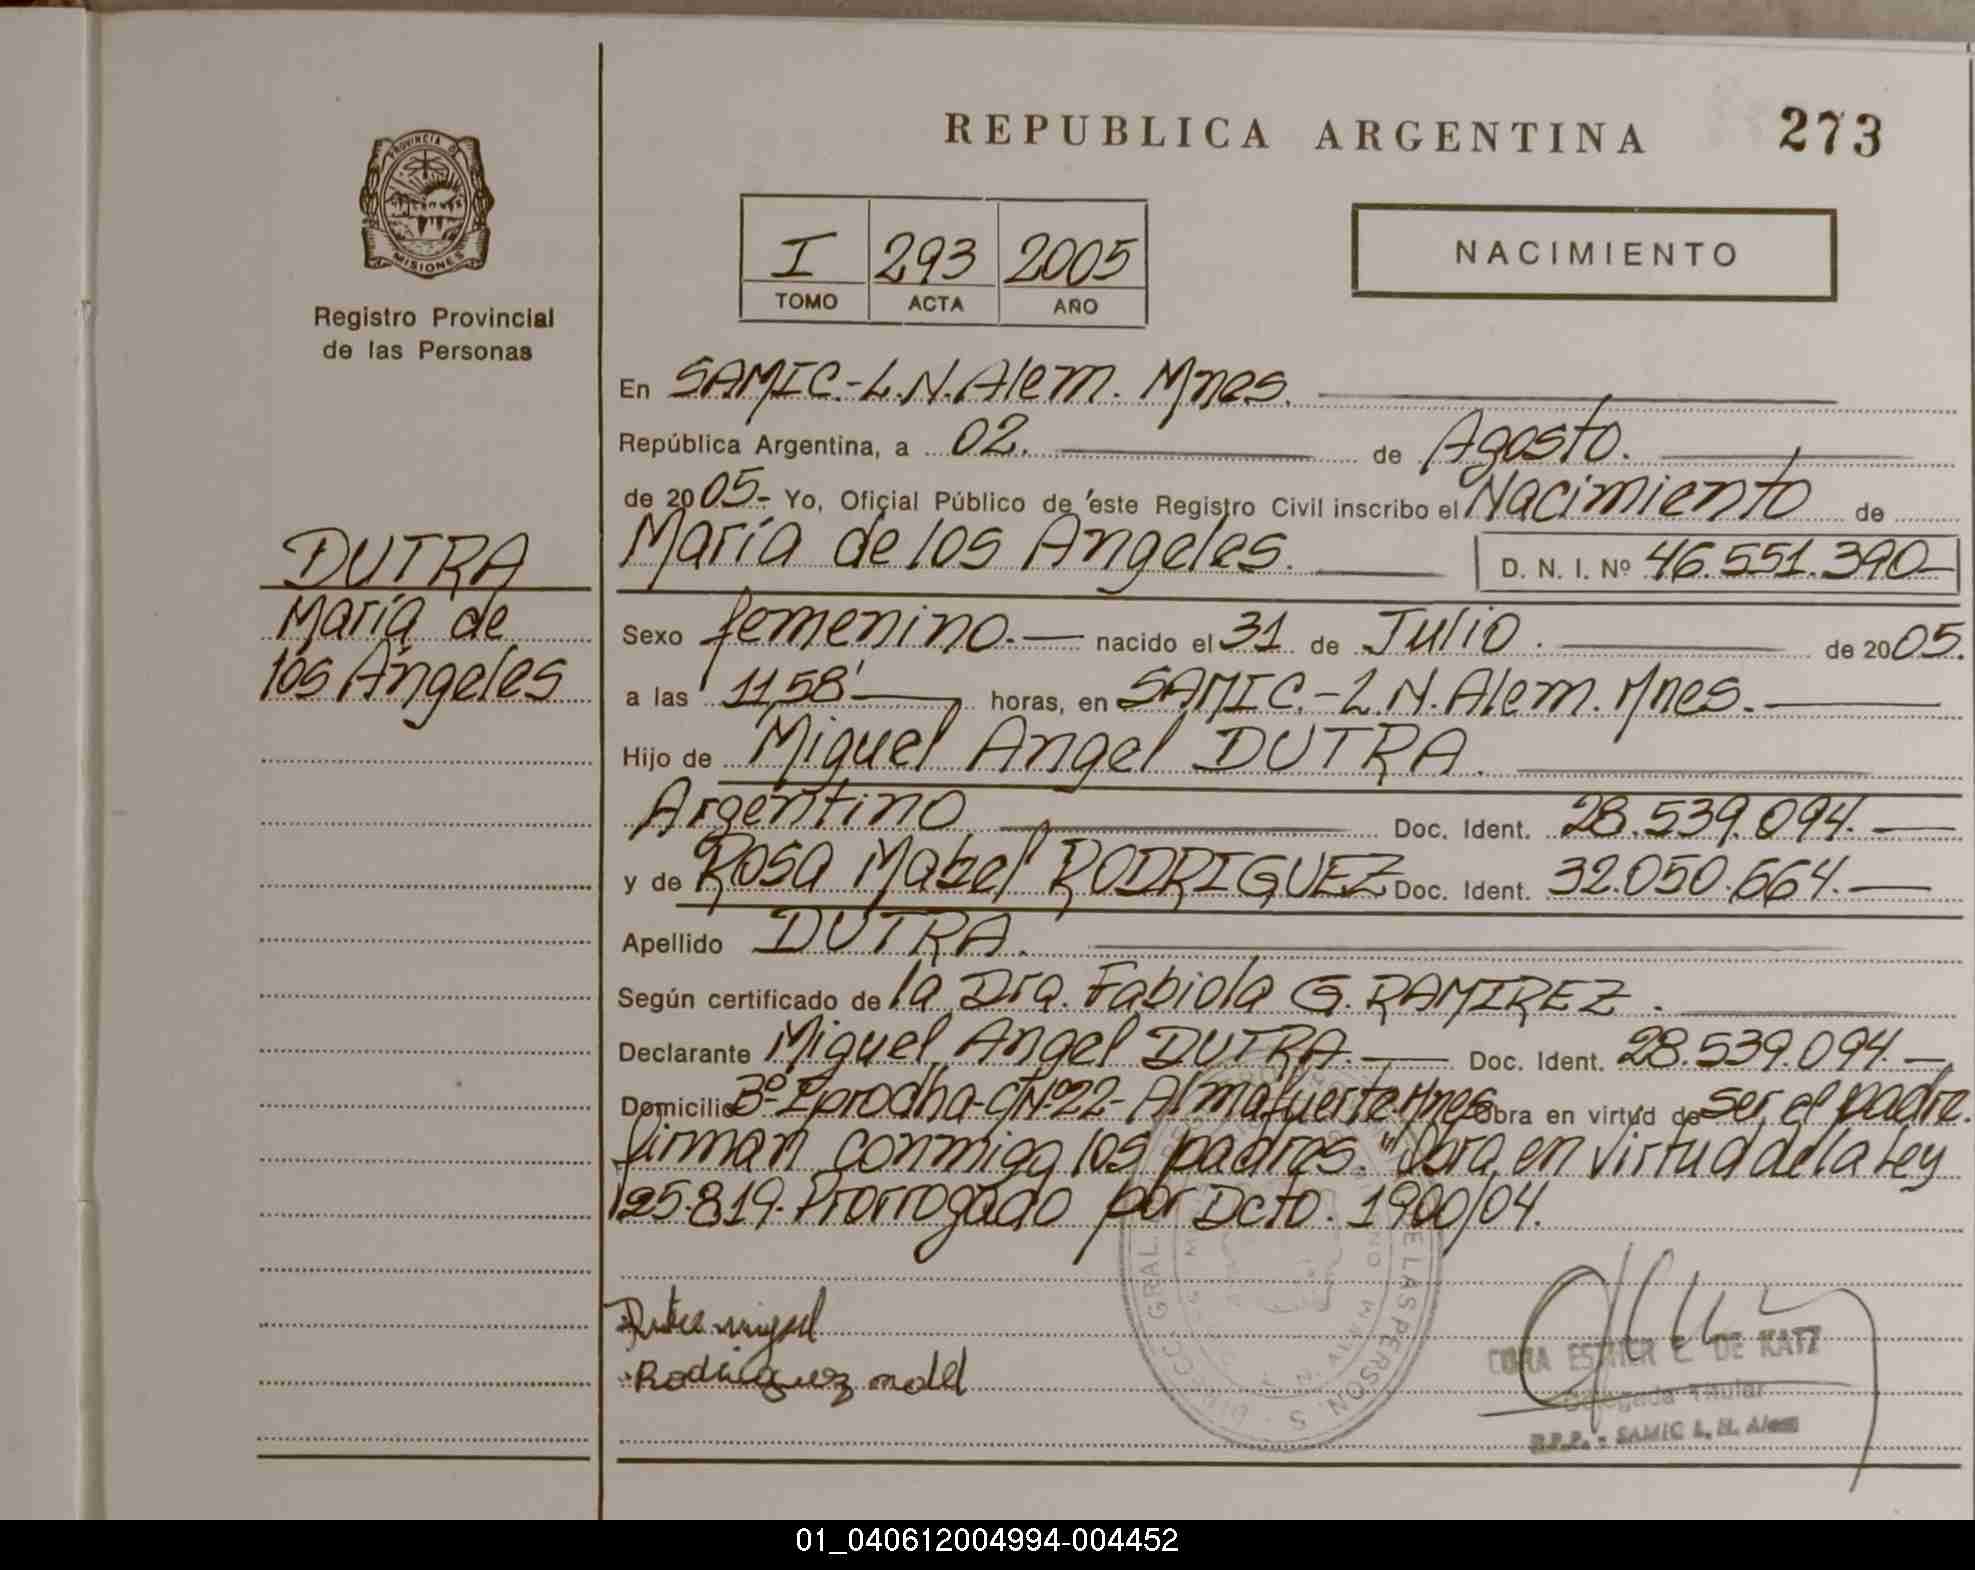 REPUBLICA ARGENTINA 273
PROVINCIA D
MISIONES
Registro Provincial
de las Personas
I 293 2005
TOMO ACTA AÑO
NACIMIENTO
En SAMIC.-L.N.Alem. Mnes.
República Argentina, a 02. de Agosto.
de 2005.- Yo, Oficial Público de este Registro Civil inscribo el Nacimiento de
María de los Angeles. D. N. I. Nº 46.551.390
DUTRA
María de
los Angeles
Sexo femenino.- nacido el 31 de Julio. de 2005.
a las 11,58' horas, en SAMIC.-L.N.Alem. Mnes.
Hijo de Miguel Angel DUTRA.
Argentino Doc. Ident. 28.539.094.
y de Rosa Mabel RODRIGUEZ Doc. Ident. 32.050.664.
Apellido DUTRA.
Según certificado de la Dra. Fabiola G. RAMIREZ.
Declarante Miguel Angel DUTRA. Doc. Ident. 28.539.094.
Domicilio Bº Eprodha-CNº22-Almafuerte.Mnes Obra en virtud de ser el padre.
firman conmigo los padres. "Obra en virtud de la Ley
25.819. Prorrogado por Dcto. 1900/04.
miguel
Rodriguez
DIRECC. GRAL. DE LAS PERSON. S
CORA ESTHER E. DE KATZ
Delegada Titular
R.P.P. - SAMIC L. N. Alem
01_040612004994-004452